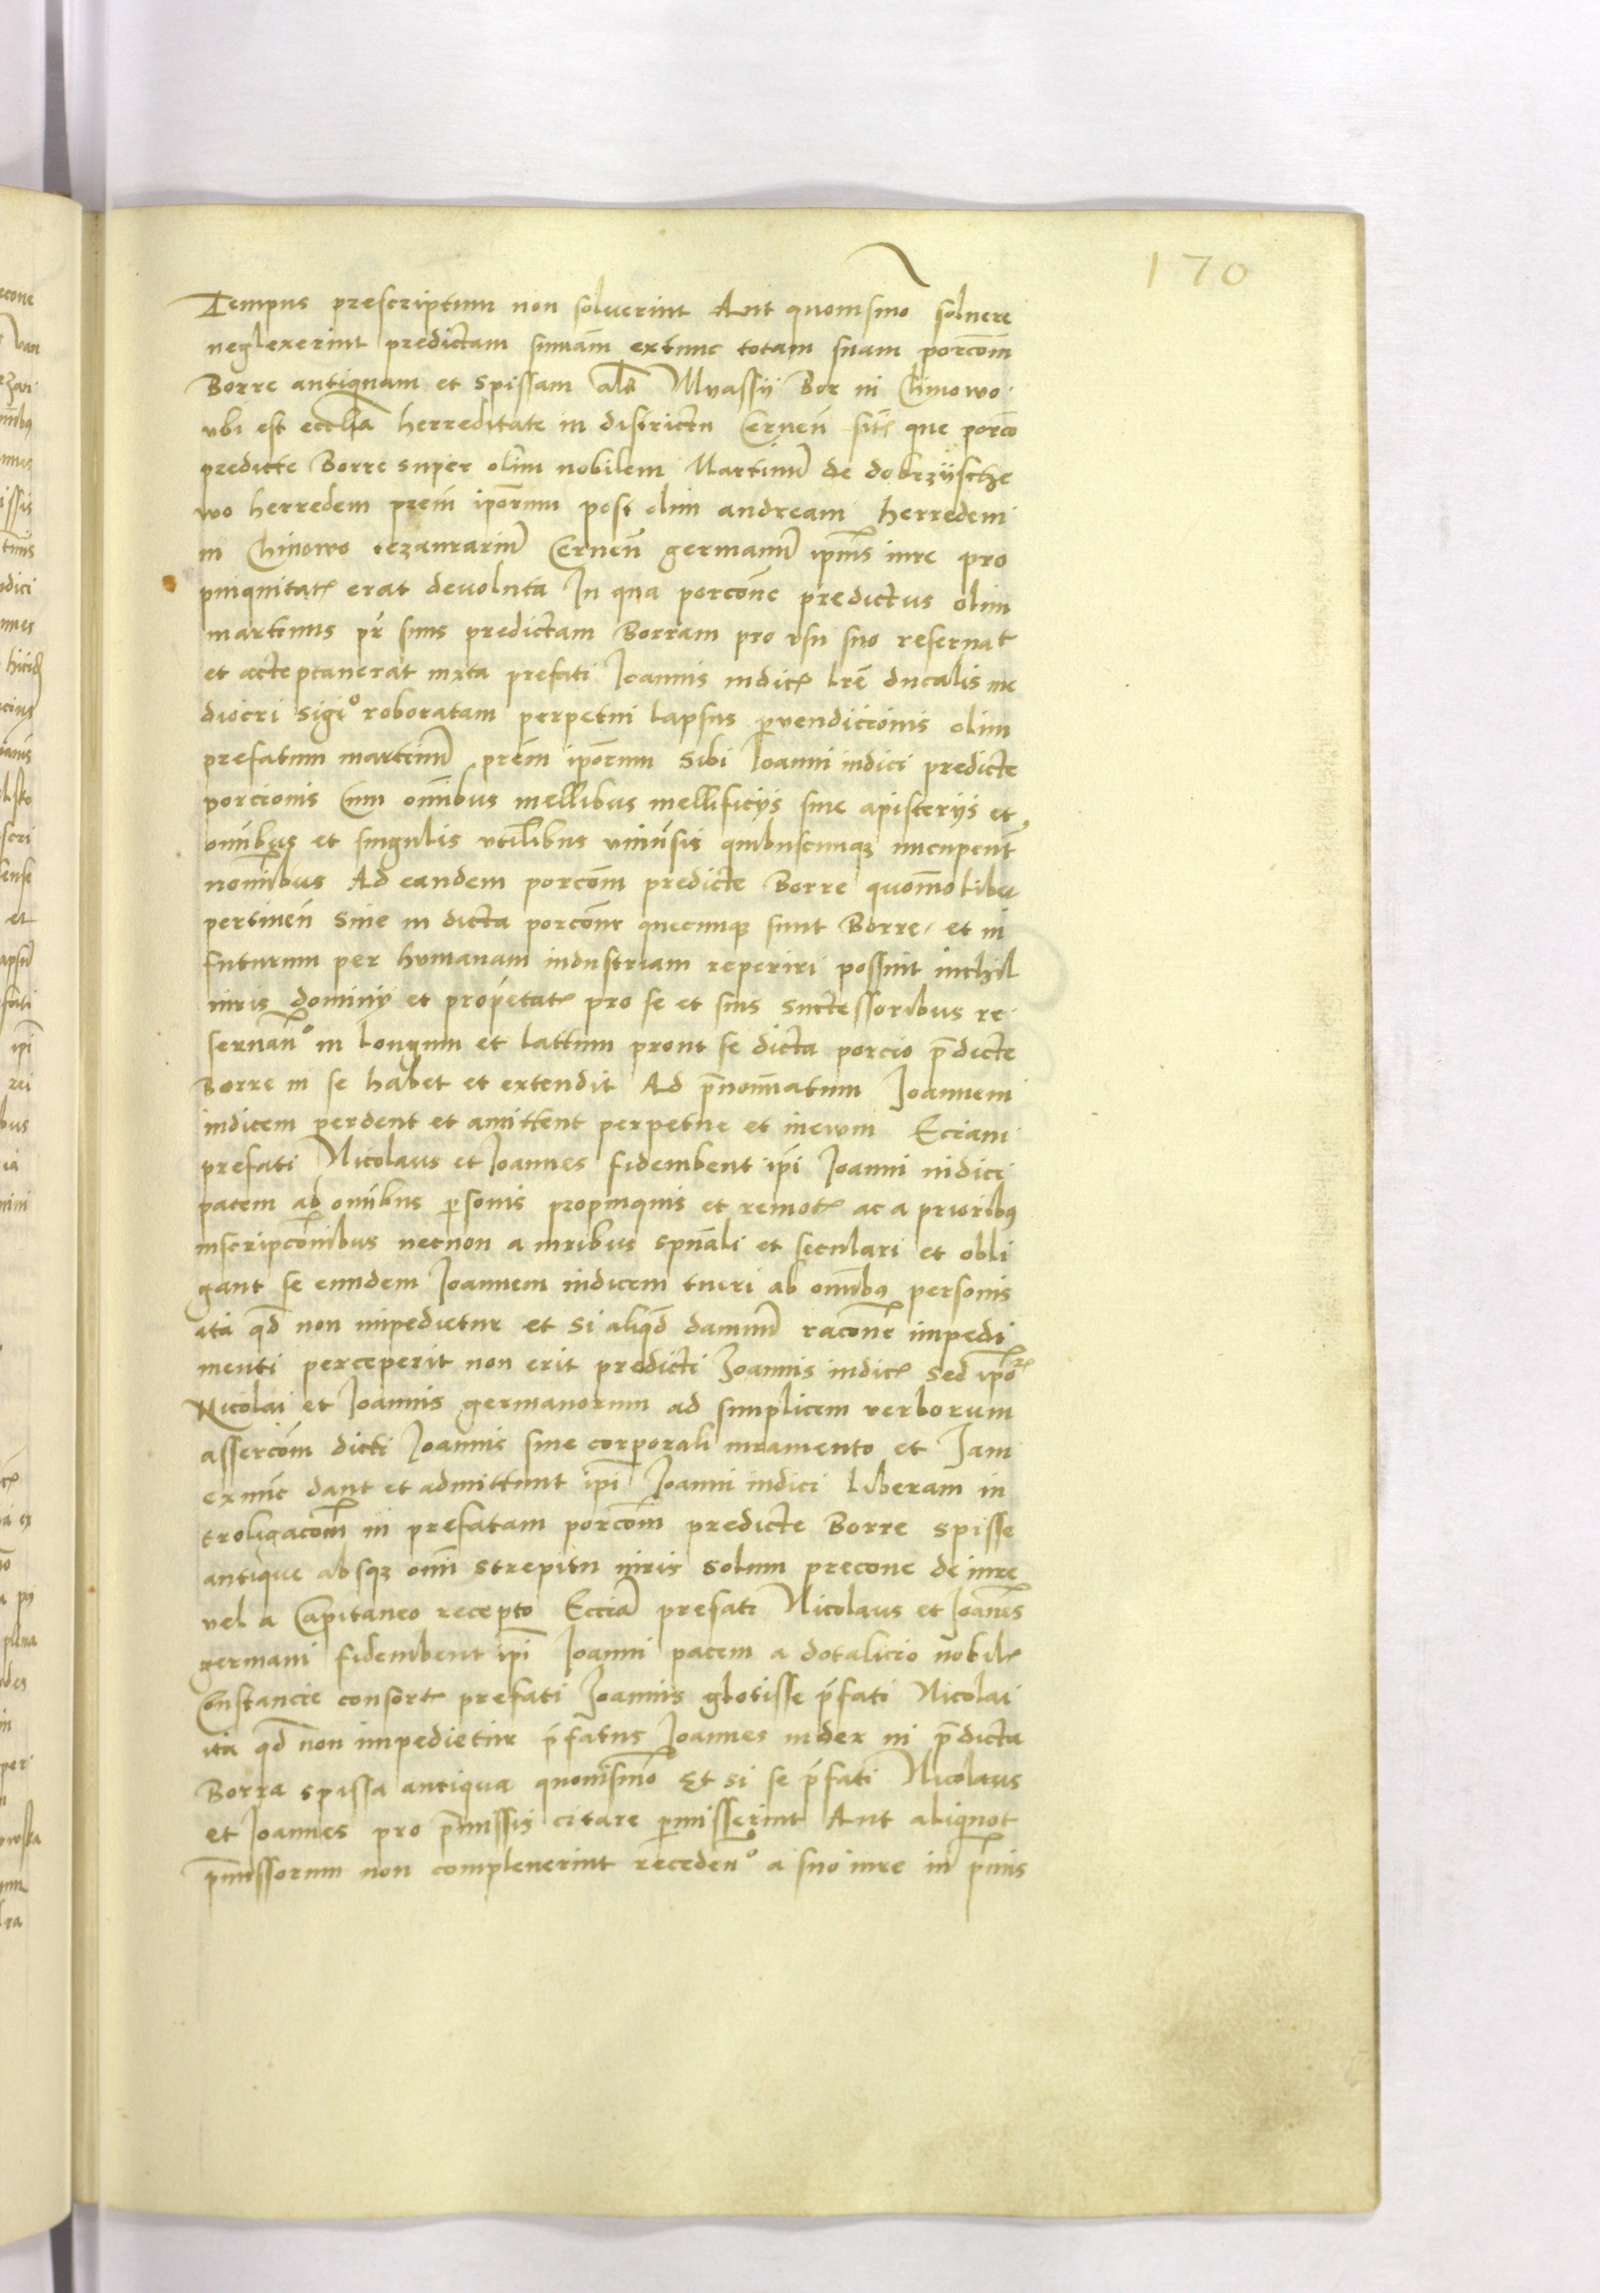 170
Tempus prescriptum non soluerint Aut quouismo soluere
neglexerint predictam sumam extunc totam suam porcom
Borre antiquam et spissam als Mvassy Bor in Chinowo
vbi est ecclia herreditate in districtu Cernen sit que porco
predicte Borre super olim nobilem Martinu de dobrzijsche
wo herredem prem iporum post olim andream herredem
in Chinowo tezaurariu Cernen germanu ipius iure pro
pinquitatis erat deuoluta In qua porcone predictus olim
martinus pr suus predictam Borram pro vsu suo reseruat
et acceptauerat iuxta prefati Ioannis iudicis lre ducalis me
diocri sigio roboratam perpetui lapsus pervendicionis olim
prefatum martinu prem iporum sibi Ioanni iudici predicte
porcionis Cum omibus mellibus mellificijs siue apisterijs et
omibus et singulis vtilibus vniuersis quibuscunqz nucupent
nominibus Ad eandem porcom predicte Borre quomolibet
pertinen siue in dicta porcone quecunqz sunt Borre et in
futurum per humanam industriam reperiri possint inchil
iuris dominij et proprietatis pro se et suis successoribus re
seruano in longum et lattum prout se dicta porcio predicte
Borre in se habet et extendit Ad prenomiatum Ioannem
iudicem perdent et amittent perpetue et in ewm Ecciam
prefati Nicolaus et Ioannes fideiubent ipi Ioanni iudici
pacem ab omibus personis propinquis et remotis ac a prioribus
inscripconibus necnon a iuribus spuali et seculari et obli
gant se eundem Ioannem iudicem tueri ab omibus personis
ita qd non impedietur et si aliqd damnu racone impedi
menti perceperit non erit predicti Ioannis iudicis sed ipor
Nicolai et Ioannis germanorum ad simplicem verborum
assercom dicti Ioannis sine corporali iuramento et Iam
exnuc dant et admittunt ipi Ioanni iudici liberam in
troligacom in prefatam porcom predicte Borre spisse
antique absqz omi strepitu iuris solum precone de iure
vel a Capitaneo recepto Ecciam prefati Nicolaus et Ioanes
germani fideiubent ipi Ioanni pacem a dotalicio nobilis
Constancie consortis prefati Ioannis glotisse prefati Nicolai
ita qd non impedietur prefatus Ioannes iudex in predicta
Borra spissa antiqua quouismo Et si se prefati Nicolaus
et Ioannes pro premissis citare permisserint Aut aliquot
premissorum non compleuerint recedendo a suo iure in primis